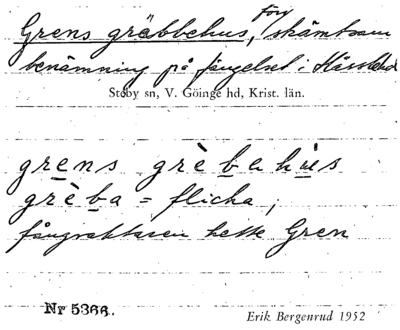 förr
Grens gräbbehus, skämtsam
benämning på fängelset i Hässleh
Stoby sn, V. Göinge hd, Krist. län.
grens grèbahùs
grèba = flicka,
fångvaktaren hette Gren
Nr 5366.
Erik Bergenrud 1952